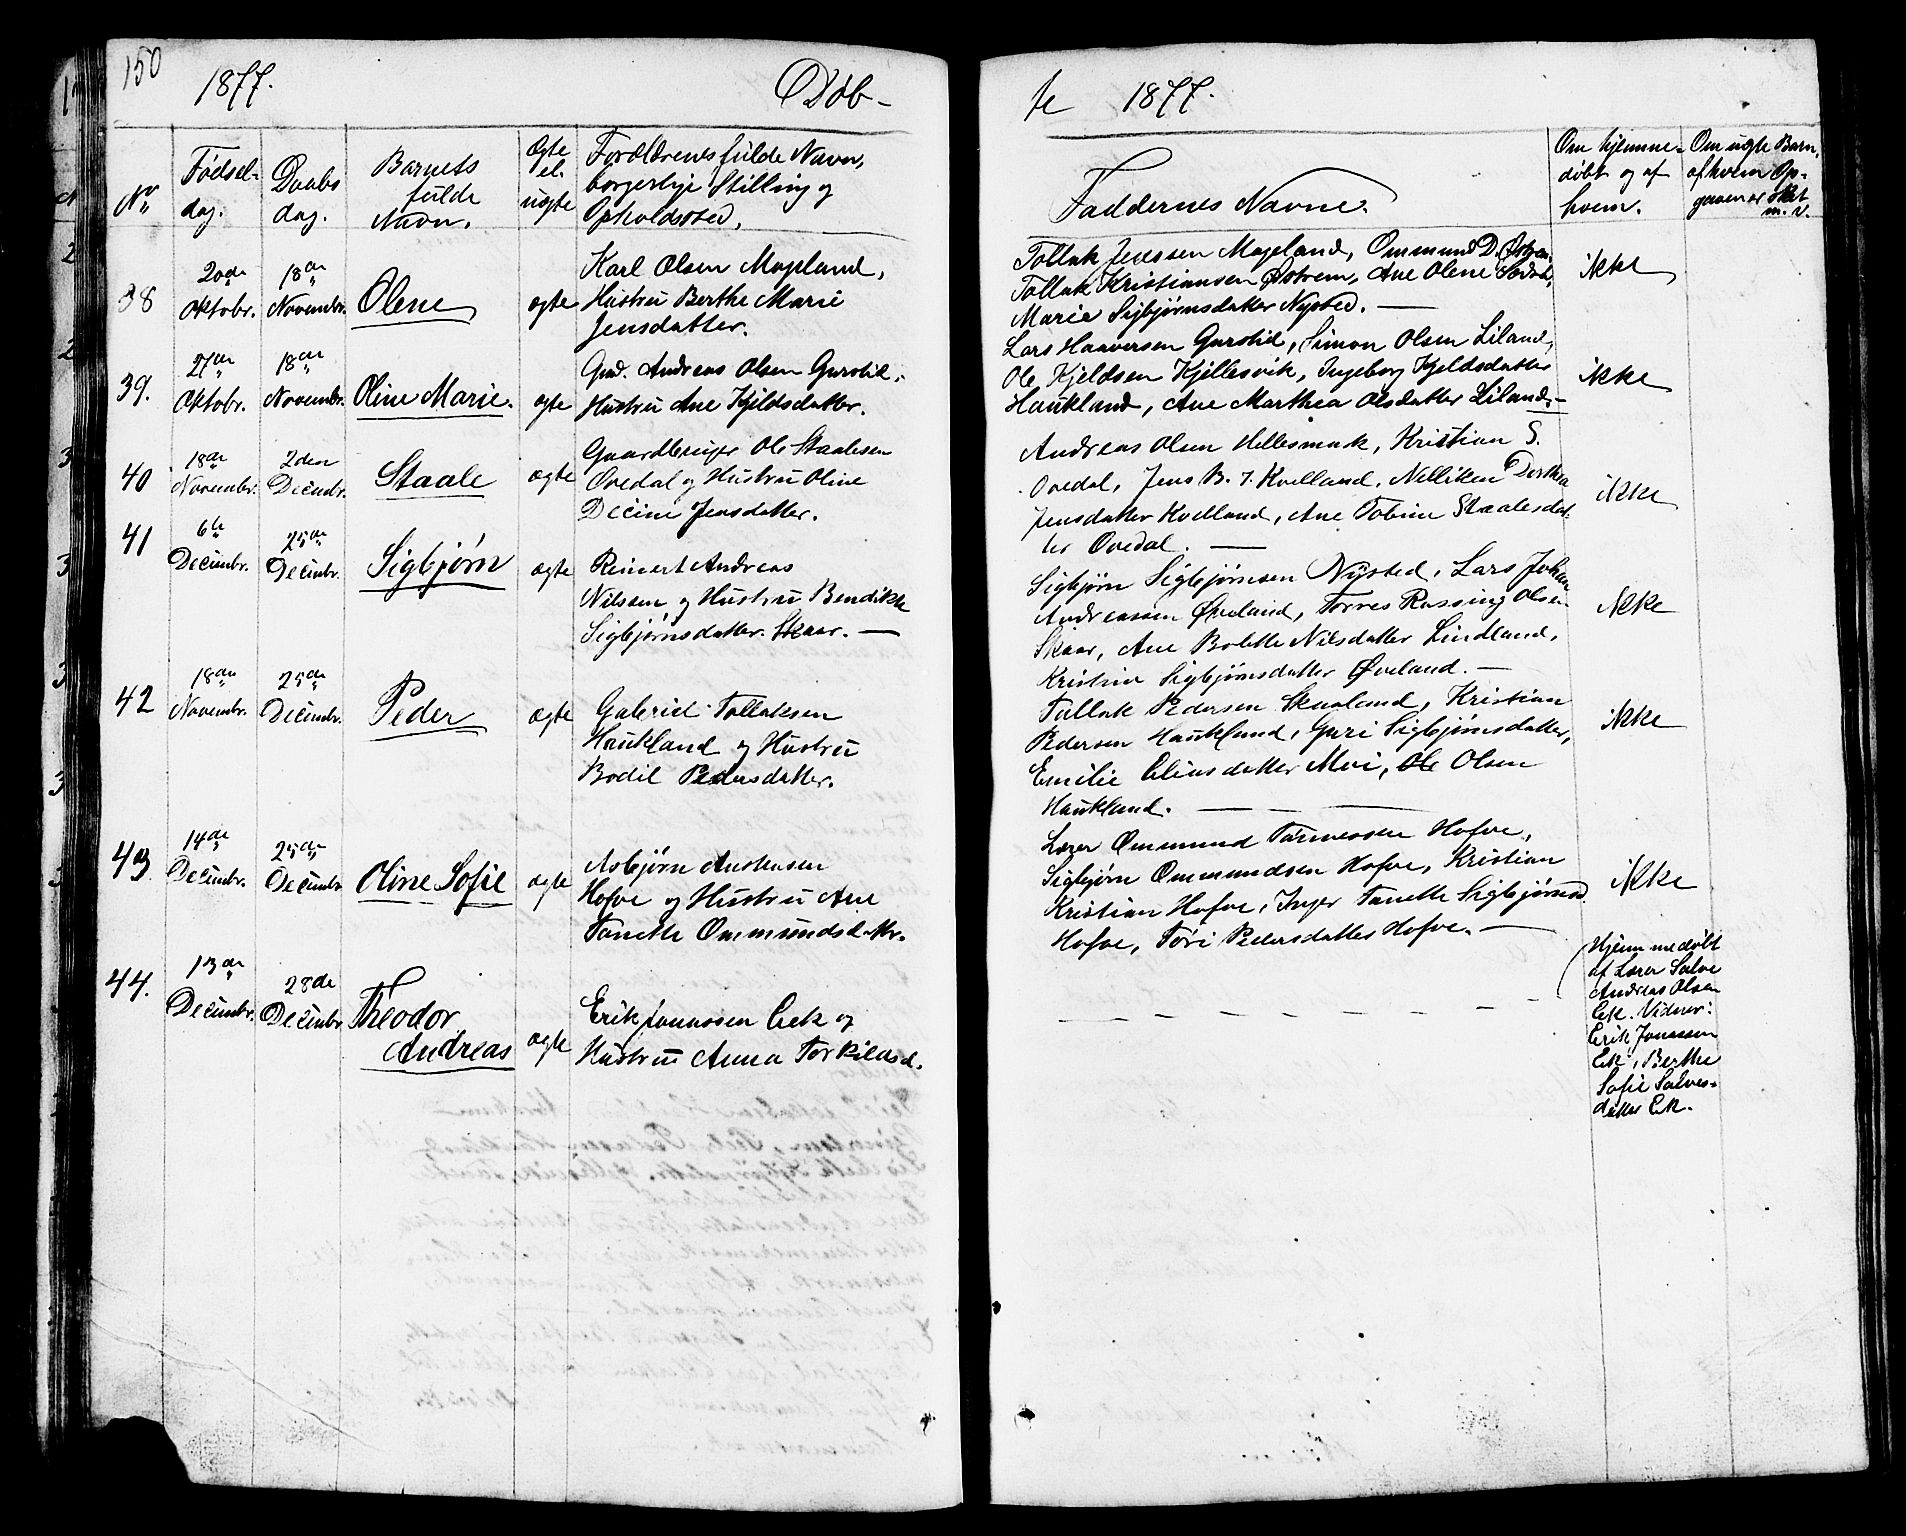 150
1877.
Døb-
te 1877.
No
Fødsel-
dag.
Daabs
dag.
Barnets
fulde
Navn.
Ægte
el.
uægte
Forældrenes fulde Navn,
borgerlige Stilling og
Opholdssted.
Faddernes Navne.
Om hjemme-
døbt og af
hvem.
Om uægte Barn,
af hvem Op-
gaven er sket
m. v.
38
20de
Oktobr.
18de
Novembr.
Olene
ægte
Karl Olsen Mageland,
Hustru Berthe Marie
Jensdatter.
Tollak Jenssen Mageland, Ommund D.
Tollak Kristiansen Østrem, Ane Olene
Marie Sigbjørnsdatter Nysted. —
ikke
39.
27de
Oktobr.
18de
Novembr.
Oline Marie.
ægte
Gmd. Andreas Olsen Gurstid,
Hustru Ane Kjeldsdatter.
Lars Haaversen Gurstid, Simon Olsen Liland,
Ole Kjeldsen Kjellesvik, Ingeborg Kjeldsdatter
Haukland, Ane Marthea Olsdatter Liland. —
ikke
40
18de
Novembr.
2den
Decembr.
Staale
ægte
Gaardbruger Ole Staalesen
Ovedal og Hustru Oline
Decine Jensdatter.
Andreas Olsen Hellesmark, Kristian S.
Ovedal, Jens B. J. Kvelland, Nellikea Dorthea
Jensdatter Kvelland, Ane Tobine Staalesdat-
ter Ovedal. —
ikke
41
6te
Decembr.
25de
Decembr.
Sigbjørn
ægte
Reinert Andreas
Nilssen og Hustru Bendikke
Sigbjørnsdatter Skaar. —
Sigbjørn Sigbjørnsen Nysted, Lars Johan
Andreassen Øveland, Torres Rassing Olsen
Skaar, Ane Bolette Nilsdatter Lindland,
Kristine Sigbjørnsdatter Øveland. —
ikke
42
18de
Novembr.
25de
Decembr.
Peder
ægte
Gabriel Tollaksen
Haukland og Hustru
Bodil Pedersdatter.
Tallak Pedersen Skaaland, Kristian
Pedersen Haukland, Guri Sigbjørnsdatter,
Emilie Eliasdatter Moi, Ole Olsen
Haukland. —
ikke
43
14de
Decembr.
25de
Decembr.
Oline Sofie
ægte
Asbjørn Austensen
Hofve og Hustru Ane
Tonette Ommundsdattr.
Lærer Ommund Tarmessen Hofve,
Sigbjørn Ommundsen Hofve, Kristian
Kristian Hofve, Inger Tonette Sigbjørnsd.
Hofve, Tøri Pedersdatter Hofve. —
ikke
44.
13de
Decembr.
28de
Decembr
Theodor
Andreas
ægte
Erik Jonassen Eek og
Hustru Anna Torkildsd.
Hjemmedøbt
af Lærer Salve
Andreas Olsen
Eek. Vidner:
Erik Jonassen
Eek, Berthe
Sofie Salves-
datter Eek.